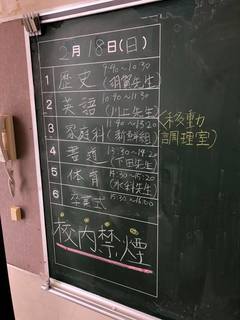 2月18日(日)
1 歴史 9:40~10:30
(胡賀先生)
2 英語 10:40~11:30
(川上先生)
3 家庭科 11:40~13:20
<移動
調理室)
4 書道 13:30~14:20
(下田先生)
5 体育 14:30~15:20
(水科先生)
6 卒業式 15:30~16:00
校内禁煙